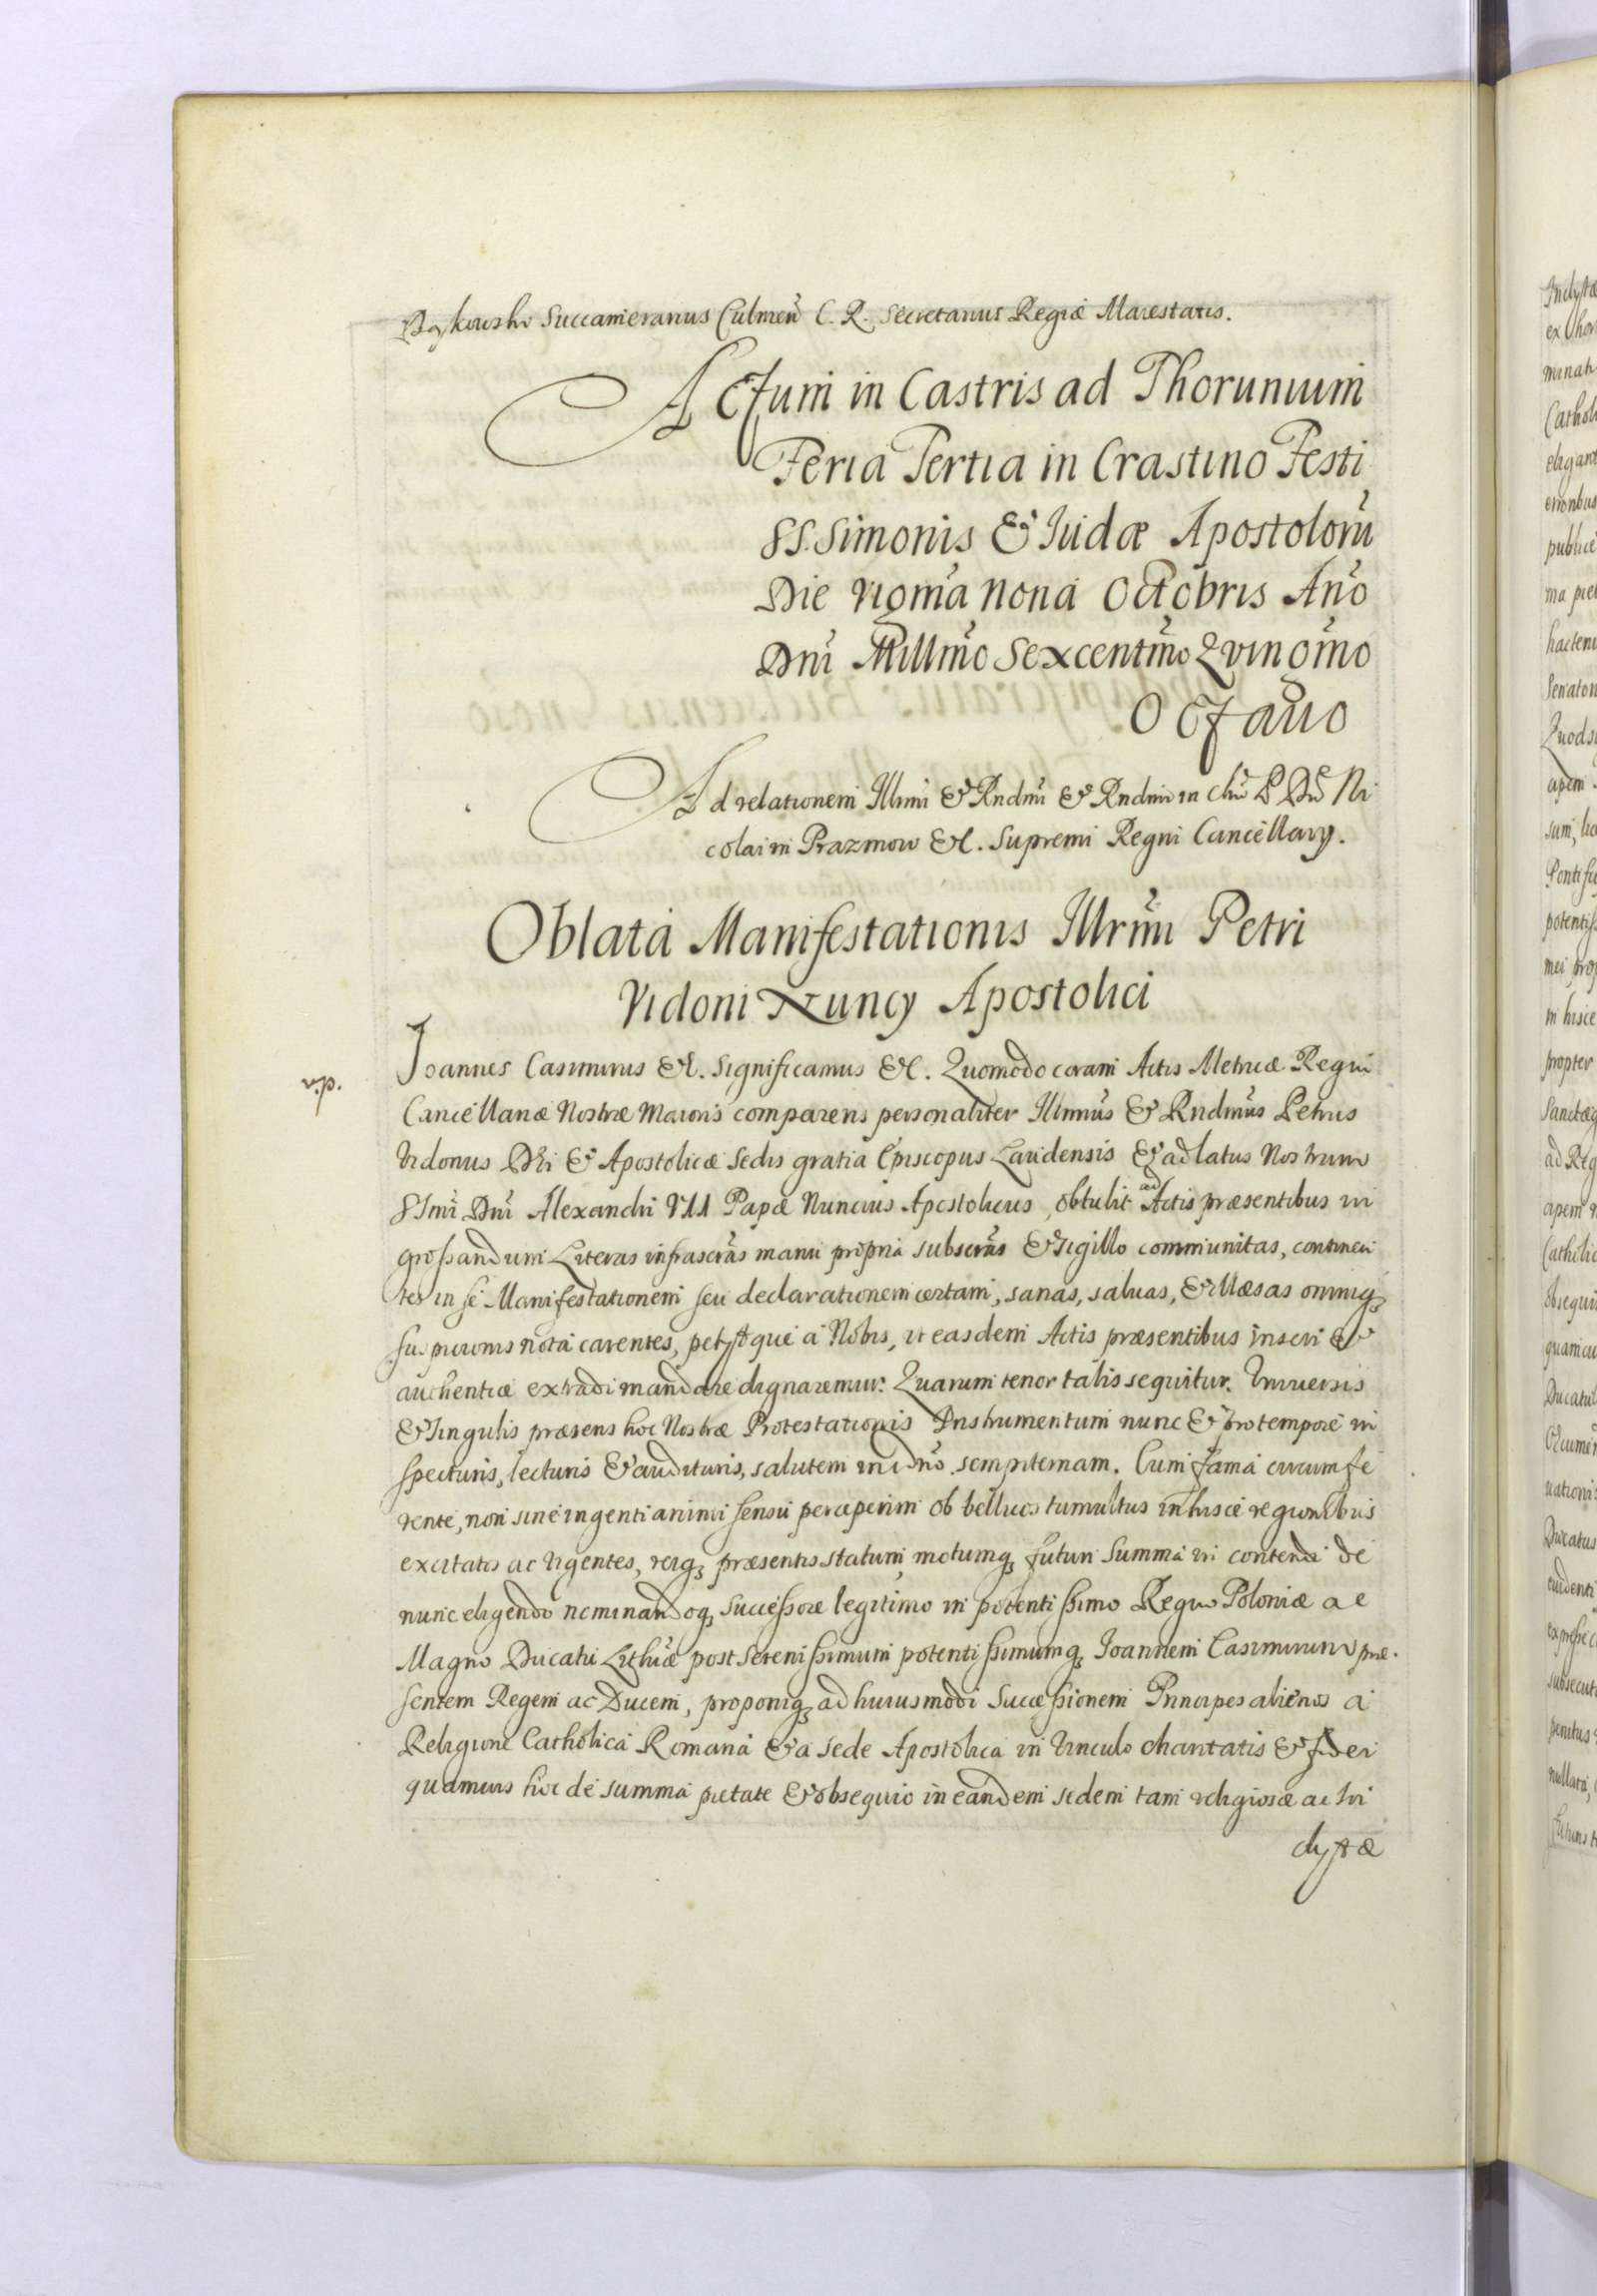 Succamerarius Culmeñ C. R. Secretarius Regiæ Maiestatis.
Actum in Castris ad Thorunium
Feria Tertia in Crastino Festi
SS. Simonis & Iudæ Apostolorũ
Die vigm̃a nona Octobris Añ̃o
Dni Millmo Sexcentmo Qvingmo
Octauo
Ad relationem Illmi & Rndmi & Rndmi in Chro P. Dni Ni
colai in Prazmow &c. Supremi Regni Cancellarÿ.
Oblata Manifestationis Illrmi Petri
Vidoni Nuncÿ Apostolici
v.p.
Joannes Casimirus &c. Significamus &c. Quomodo coram Actis Metricæ Regni
Cancellariæ Nostræ Maioris comparens personaliter Illmus & Rndmus Petrus
Vidonus Dei & Apostolicæ Sedis gratia Episcopus Laudensis & ad latus Nostrum
SSmi Dni Alexandri VII Papæ Nuncius Apostolicus, obtulit ad Actis præsentibus in
grossandum Literas infrascras manu propria subscras & Sigillo communitas, continen
tes in se Manifestationem seu declarationem certam, sanas, saluas, & illæsas omniq3
suspicionis nota carentes, petÿtque à Nobis, ut easdem Actis præsentibus inseri &
authenticæ extradi mandare dignaremur. Quarum tenor talis sequitur. Vniuersis
& Singulis præsens hoc Nostræ Protestationis Instrumentum nunc & pro tempore in
specturis, lecturis & audituris, salutem in Dño sempiternam. Cum fama circumfe
rente, non sine ingenti animi sensu perceperim ob bellicos tumultus in hisce regionibus
excitatos ac vigentes, reiq3 præsentis statum, motumq3 futuri Summa vi contendi de
nunc eligendo nominandoq3 successore legitimo in potentissimo Regno Poloniæ ac
Magno Ducatu Lithuæ post Serenissimum potentissimumq3 Joannem Casimirum præ-
sentem Regem ac Ducem, proponiq3 ad huiusmodi Successionem Principes alienos à
Religione Catholica Romana & a Sede Apostolica in Vinculo charitatis & fidei
quamuis hoc de summa pietate & obsequio in eandem sedem tam religiosæ ac In
clÿtæ